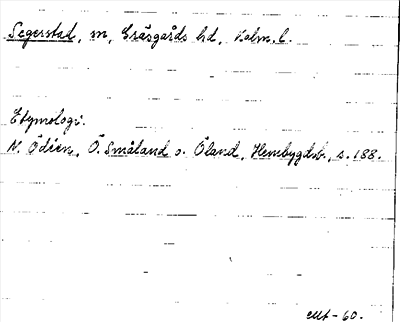 Segerstad, m, Gräsgårds hd, Kalm. l.
Etymologi:
N. Ödéen, Ö. Småland o. Öland, Hembygdsb., s. 188.
-60.